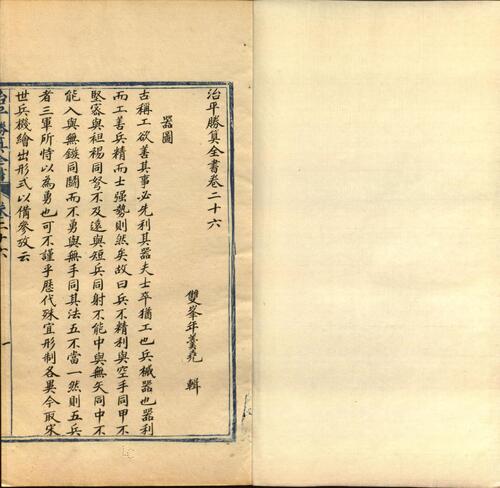 治平勝算全書卷二十六
雙峯年羹堯 輯
器圖
古稱工欲善其事必先利其器夫士卒猶工也兵械器也器利
而工善兵精而士强勢則然矣故曰兵不精利與空手同甲不
堅宻與袒裼同弩不及遠與短兵同射不能中與無矢同中不
能入與無鏃同鬭而不勇與無手同其法五不當一然則五兵
者三軍所恃以為勇也可不謹乎歷代殊宜形制各異今取宋
世兵機繪出形式以備參攷云
治平勝算全書 卷二十六 一